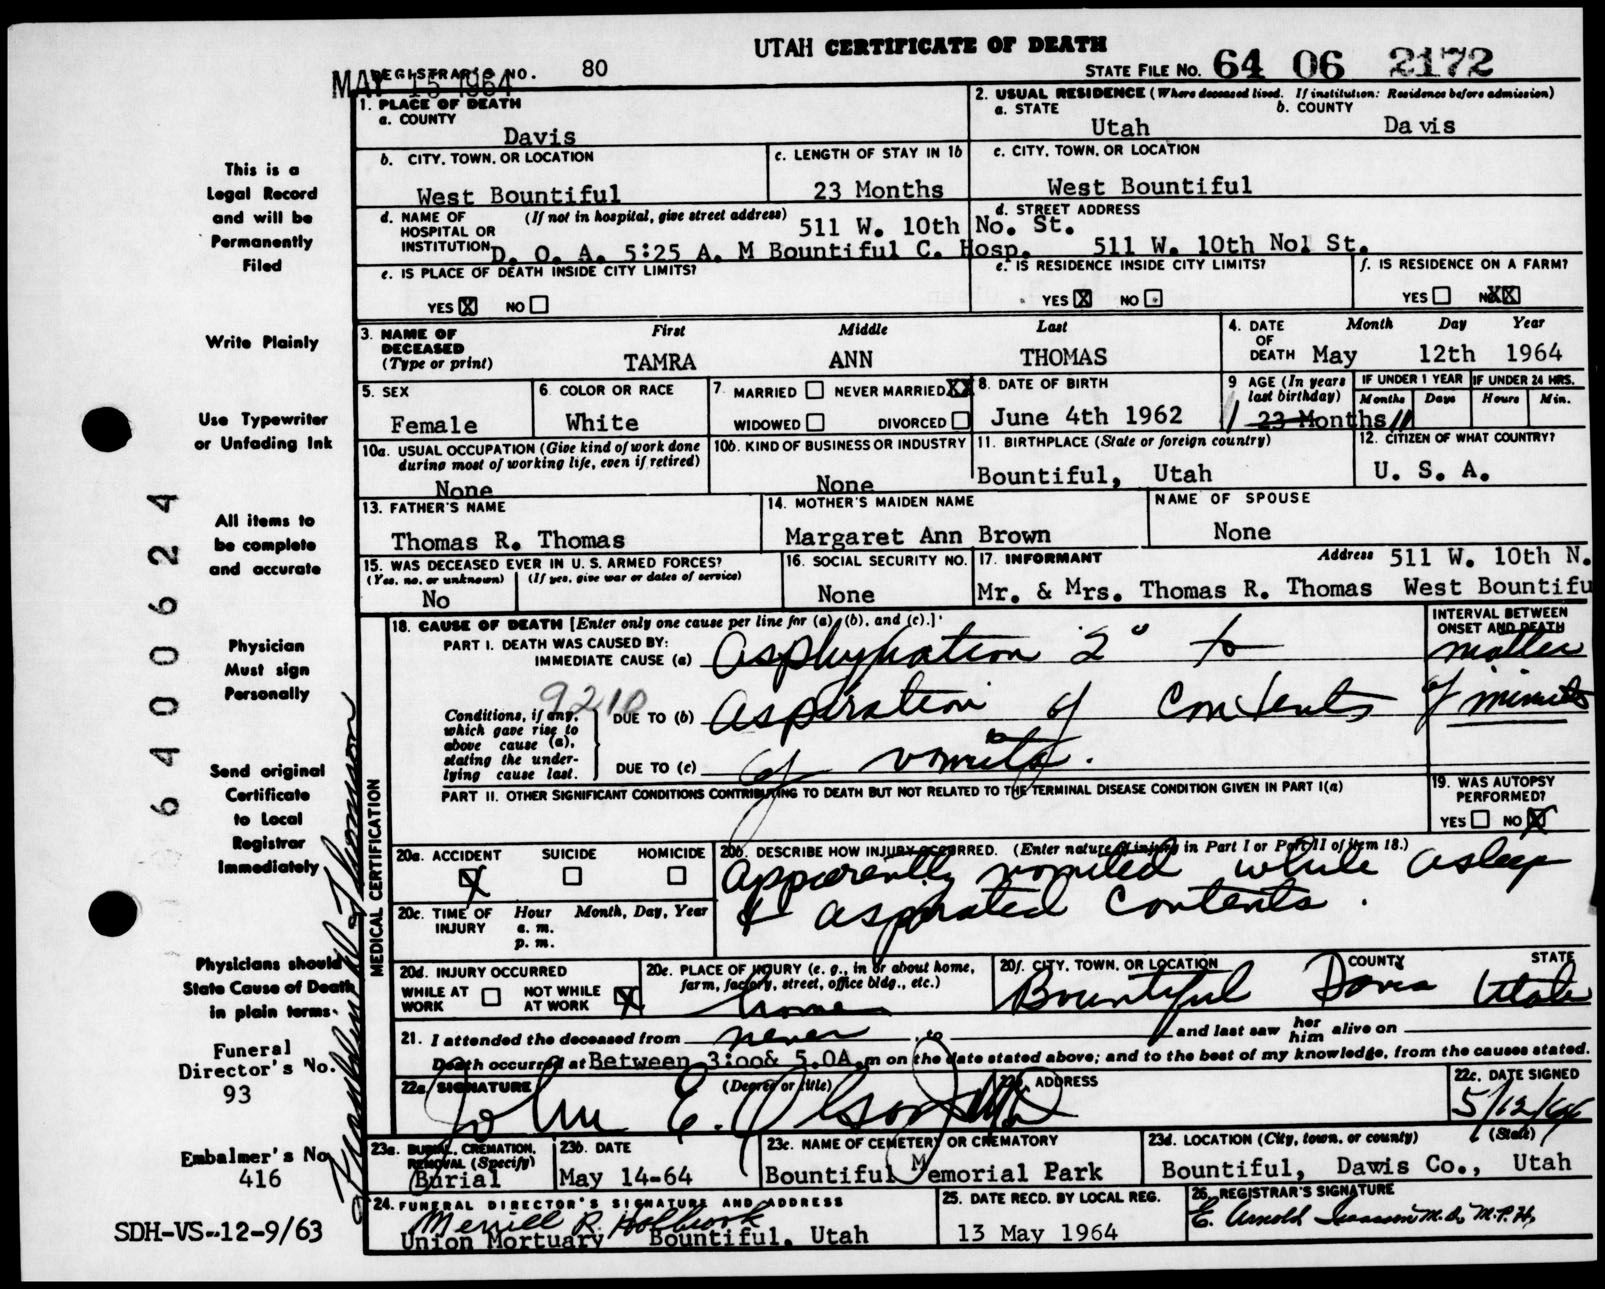 UTAH CERTIFICATE OF DEATH
MAY 15 1964
REGISTRAR'S NO. 80
STATE FILE NO. 64 06 2172
1. PLACE OF DEATH
a. COUNTY
Davis
2. USUAL RESIDENCE (Where deceased lived. If institution: Residence before admission)
a. STATE b. COUNTY
Utah Davis
b. CITY, TOWN, OR LOCATION
West Bountiful
c. LENGTH OF STAY IN 1b
23 Months
c. CITY, TOWN, OR LOCATION
West Bountiful
d. NAME OF HOSPITAL OR INSTITUTION (If not in hospital, give street address)
511 W. 10th No. St.
D. O. A. 5:25 A. M Bountiful C. Hosp.
d. STREET ADDRESS
511 W. 10th No1 St.
e. IS PLACE OF DEATH INSIDE CITY LIMITS?
YES X NO
e. IS RESIDENCE INSIDE CITY LIMITS?
YES X NO
f. IS RESIDENCE ON A FARM?
YES NO XX
3. NAME OF DECEASED (Type or print)
First Middle Last
TAMRA ANN THOMAS
4. DATE OF DEATH Month Day Year
May 12th 1964
5. SEX
Female
6. COLOR OR RACE
White
7. MARRIED NEVER MARRIED XX
WIDOWED DIVORCED
8. DATE OF BIRTH
June 4th 1962
9 AGE (In years last birthday)
IF UNDER 1 YEAR IF UNDER 24 HRS.
Months Days Hours Min.
1 23 Months 11
10a. USUAL OCCUPATION (Give kind of work done during most of working life, even if retired)
None
10b. KIND OF BUSINESS OR INDUSTRY
None
11. BIRTHPLACE (State or foreign country)
Bountiful, Utah
12. CITIZEN OF WHAT COUNTRY?
U. S. A.
13. FATHER'S NAME
Thomas R. Thomas
14. MOTHER'S MAIDEN NAME
Margaret Ann Brown
NAME OF SPOUSE
None
15. WAS DECEASED EVER IN U. S. ARMED FORCES?
(Yes, no, or unknown) (If yes, give war or dates of service)
No
16. SOCIAL SECURITY NO.
None
17. INFORMANT Address 511 W. 10th N.
Mr. & Mrs. Thomas R. Thomas West Bountifu
MEDICAL CERTIFICATION
18. CAUSE OF DEATH [Enter only one cause per line for (a), (b), and (c).]
PART I. DEATH WAS CAUSED BY:
IMMEDIATE CAUSE (a) Asphyxiation 2° to
9210
Conditions, if any, which gave rise to above cause (a), stating the underlying cause last.
DUE TO (b) aspiration of contents
DUE TO (c) of vomitus.
INTERVAL BETWEEN ONSET AND DEATH
matter
of minutes
PART II. OTHER SIGNIFICANT CONDITIONS CONTRIBUTING TO DEATH BUT NOT RELATED TO THE TERMINAL DISEASE CONDITION GIVEN IN PART I(a)
19. WAS AUTOPSY PERFORMED?
YES NO X
20a. ACCIDENT SUICIDE HOMICIDE
X
20b. DESCRIBE HOW INJURY OCCURRED. (Enter nature of injury in Part I or Part II of item 18.)
Apparently vomited while asleep
& aspirated contents.
20c. TIME OF INJURY Hour Month, Day, Year
a. m.
p. m.
20d. INJURY OCCURRED
WHILE AT WORK NOT WHILE AT WORK X
20e. PLACE OF INJURY (e. g., in or about home, farm, factory, street, office bldg., etc.)
home
20f. CITY, TOWN, OR LOCATION COUNTY STATE
Bountiful Davis Utah
21. I attended the deceased from never to and last saw her him alive on
Death occurred at Between 3:oo& 5.0A.m on the date stated above; and to the best of my knowledge, from the causes stated.
22a. SIGNATURE (Degree or title) 22b. ADDRESS
John E. Olson MD
22c. DATE SIGNED
5/12/64
23a. BURIAL, CREMATION, REMOVAL (Specify)
Burial
23b. DATE
May 14-64
23c. NAME OF CEMETERY OR CREMATORY
Bountiful Memorial Park
23d. LOCATION (City, town, or county) (State)
Bountiful, Dawis Co., Utah
24. FUNERAL DIRECTOR'S SIGNATURE AND ADDRESS
Merrill R. Holbrook
Union Mortuary Bountiful, Utah
25. DATE RECD. BY LOCAL REG.
13 May 1964
26. REGISTRAR'S SIGNATURE
E. Arnold Isaacson M.D., M.P.H.
This is a
Legal Record
and will be
Permanently
Filed
Write Plainly
Use Typewriter
or Unfading Ink
All items to
be complete
and accurate
Physician
Must sign
Personally
Send original
Certificate
to Local
Registrar
Immediately
Physicians should
State Cause of Death
in plain terms.
Funeral
Director's No.
93
Embalmer's No
416
SDH-VS-12-9/63
6400624